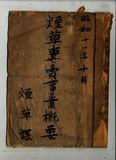 昭和十一年十月
煙草專賣事業概要
煙草課